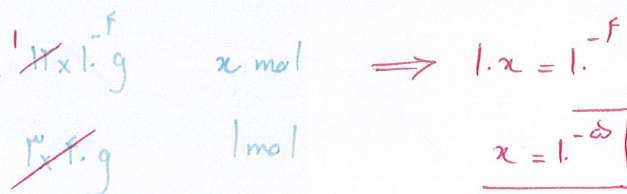 ۱
۱۲ × ۱۰⁻⁴ g x mol ⟹ ۱۰x = ۱۰⁻⁴
۳ × ۴۰ g 1 mol x = ۱۰⁻⁵